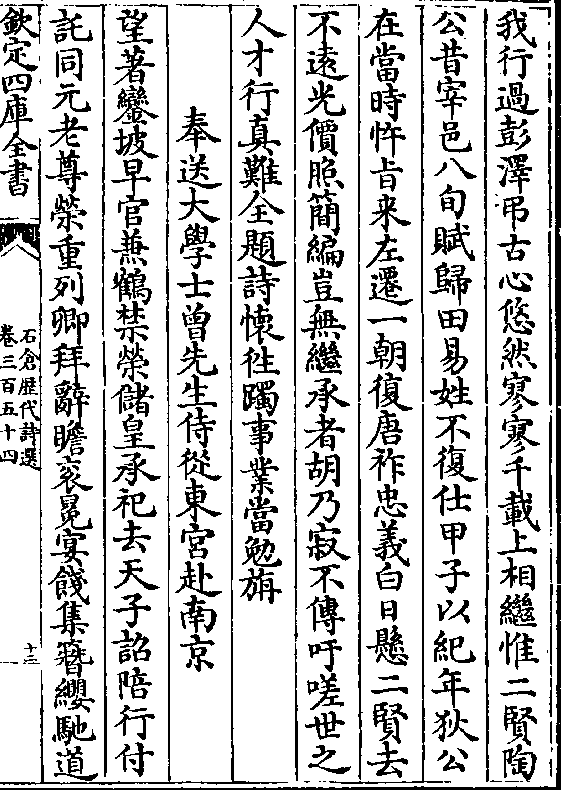 我行過彭澤弔古心悠然寥寥千載上相繼惟二賢陶
公昔宰邑八旬賦歸田易姓不復仕甲子以紀年狄公
在當時忤旨来左遷一朝復唐祚忠義白日懸二賢去
不遠光價照簡編豈無繼承者胡乃寂不傳吁嗟世之
人才行真難全題詩懷徃躅事業當勉旃
奉送大學士曾先生侍從東宫赴南京
望著鑾坡早官兼鶴禁榮儲皇承祀去天子詔陪行付
託同元老尊榮重列卿拜辭瞻衮冕宴餞集簪纓馳道
欽定四庫全書
石倉歴代詩選
卷三百五十四
十三